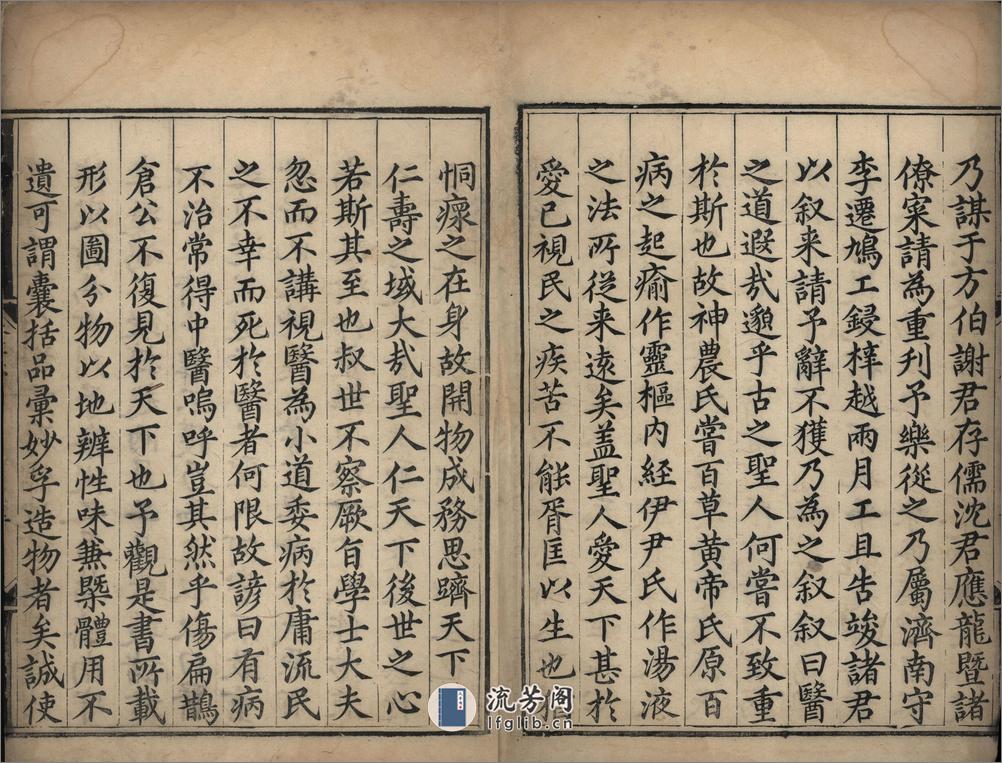 乃謀于方伯謝君存儒沈君應龍暨諸
僚寀請為重刊予樂從之乃屬濟南守
李遷鳩工鋟梓越兩月工且告竣諸君
以叙来請予辭不獲乃為之叙叙曰醫
之道遐㢤邈乎古之聖人何嘗不致重
於斯也故神農氏嘗百草黄帝氏原百
病之起瘉作靈樞内經伊尹氏作湯液
之法所從来遠矣盖聖人愛天下甚於
愛已視民之疾苦不能胥匡以生也
恫瘝之在身故開物成務思躋天下
仁壽之域大㢤聖人仁天下後世之心
若斯其至也叔世不察厥旨學士大夫
忽而不講視醫為小道委病於庸流民
之不幸而死於醫者何限故諺曰有病
不治常得中醫嗚呼豈其然乎傷扁鵲
倉公不復見於天下也予觀是書所載
形以圖分物以地辨性味兼槩體用不
遺可謂囊括品彙妙孚造物者矣誠使
流芳阁
lfglib.cn